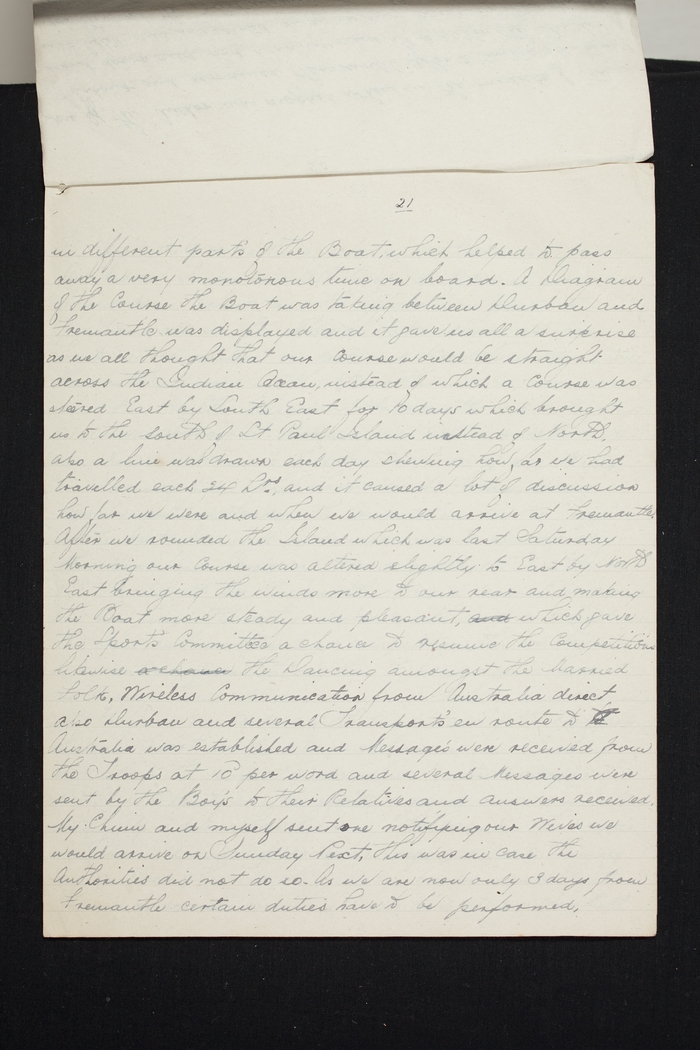 21
in different parts of the Boat, which helped to pass
away a very monotonous time on board. A Diagram
of the Course the Boat was taking between Durban and
Fremantle was displayed and it gave us all a surprise
as we all thought that our course would be straight
across the Indian Ocean, instead of which a course was
steered East by South East for 10 days which brought
us to the South of St Paul Island instead of North,
also a line was drawn each day shewing how far we had
travelled each 24 hrs, and it caused a lot of discussion
how far we were and when we would arrive at Fremantle.
After we rounded the Island which was last Saturday
Morning our Course was altered slightly to East by North
East bringing the winds more to our rear and making
the Boat more steady and pleasant, and which gave
the Sports Committee a chance to resume the Competitions
likewise a chance the Dancing amongst the Married
Folk, Wireless Communication from Australia direct
also Durban and several Transports en route to
Australia was established and Messages were received from
the Troops at 10d per word and several Messages were
sent by the Boys to their Relatives and answers received.
My Chum and myself sent one notifying our Wives we
would arrive on Sunday Next, this was in case the
Authorities did not do so. As we are now only 3 days from
Fremantle certain duties have to be performed,